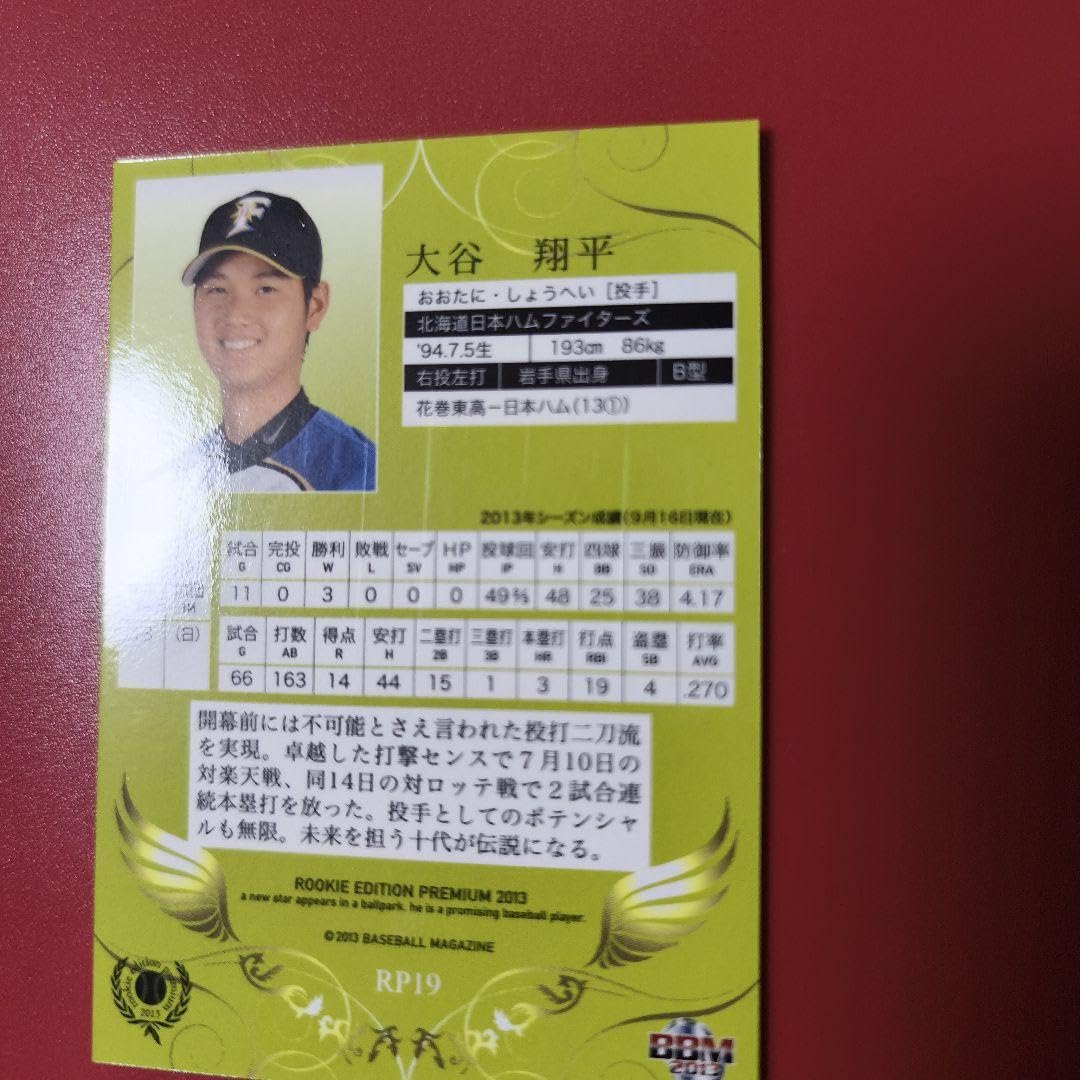 大谷 翔平
おおたに・しょうへい [投手]
北海道日本ハムファイターズ
'94.7.5生 193cm 86kg
右投左打 岩手県出身 B型
花巻東高−日本ハム(13①)
2013年シーズン成績(9月16日現在)
試合 完投 勝利 敗戦 セーブ HP 投球回 安打 四球 三振 防御率
G CG W L SV HP IP H BB SO ERA
11 0 3 0 0 0 49⅔ 48 25 38 4.17
(日) 試合 打数 得点 安打 二塁打 三塁打 本塁打 打点 盗塁 打率
G AB R H 2B 3B HR RBI SB AVG
66 163 14 44 15 1 3 19 4 .270
開幕前には不可能とさえ言われた投打二刀流
を実現。卓越した打撃センスで7月10日の
対楽天戦、同14日の対ロッテ戦で2試合連
続本塁打を放った。投手としてのポテンシャ
ルも無限。未来を担う十代が伝説になる。
ROOKIE EDITION PREMIUM 2013
a new star appears in a ballpark. he is a promising baseball player.
©2013 BASEBALL MAGAZINE
RP19
rookie edition premium
2013
BBM
2013